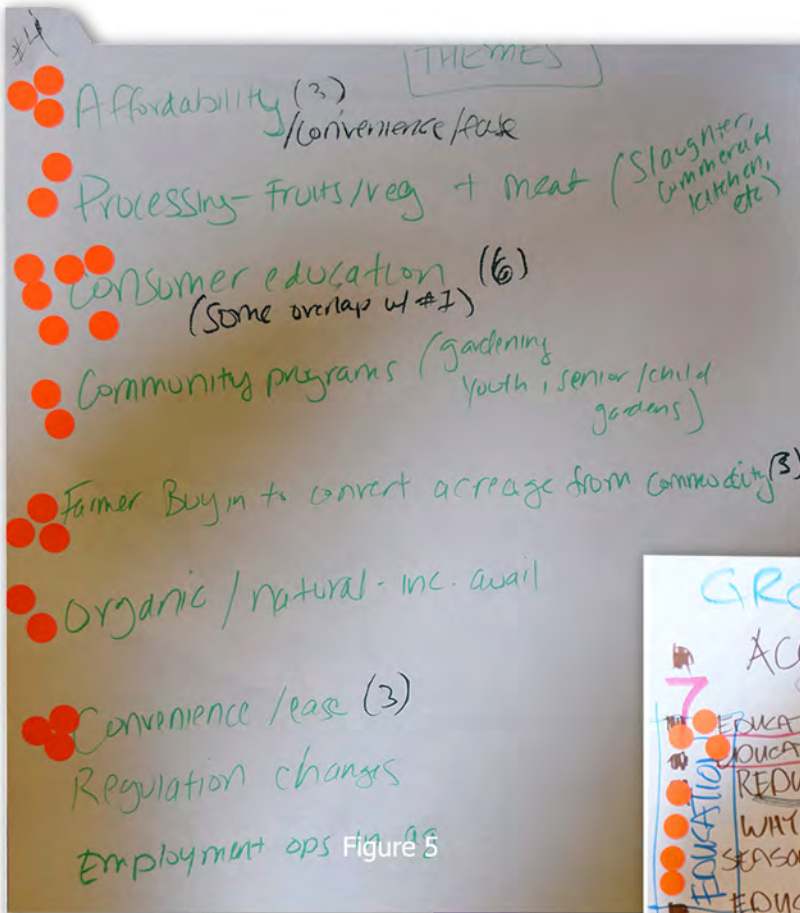 #4
THEMES
Affordability (3)
/convenience/ease
Processing - Fruits/veg + meat (Slaughter,
commercial
kitchen,
etc)
Consumer education (6)
(Some overlap w/ #1)
Community programs (gardening
youth, senior/child
gardens)
Farmer Buy in to convert acreage from commodity (3)
Organic / natural - inc. avail
Convenience /ease (3)
Regulation changes
Employment ops in ag
Figure 5
GRO
AC
7
EDUCAT
EDUCATION
REDU
WHY
SEASO
EDUC